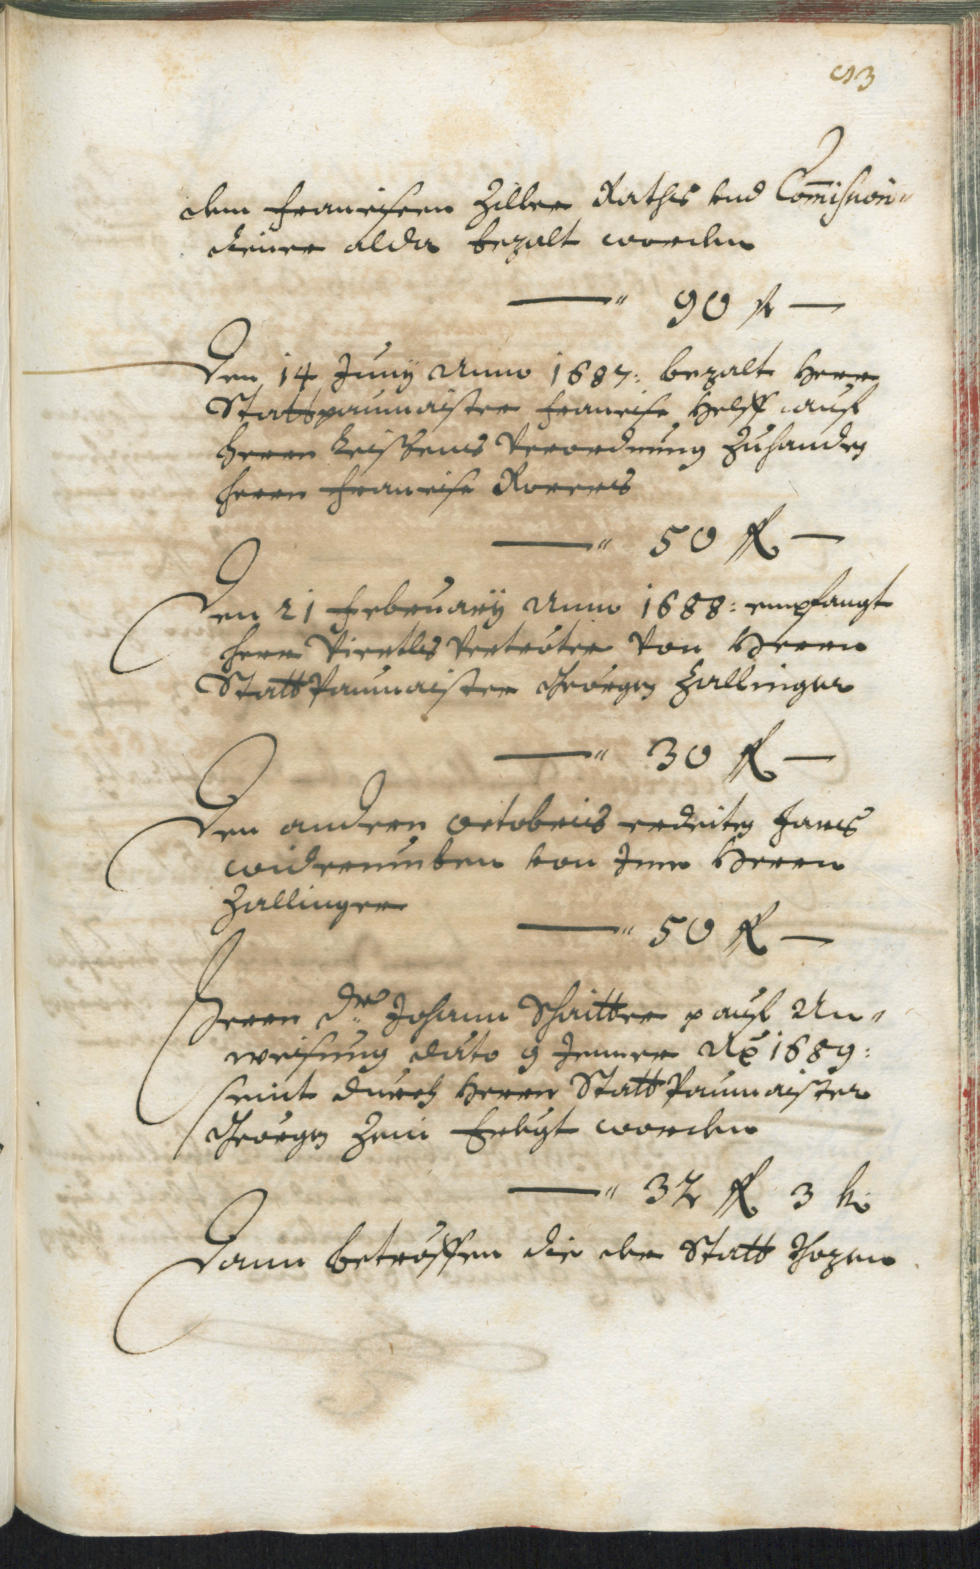 93
dem Francisen Ziller Raths und Commission-
diener alda bezalt worden
—" 90 fl —
Den 14 Juny Anno 1687: bezalt Herr
Stattpaumaister Francisc auf
Herrn Verordnung Zuhanden
Herrn Francisc
—" 50 fl —
Den 21 February Anno 1688: empfangt
Herr Vertröter von Herrn
StattPaumaister Georgen Zallinger
—" 30 fl —
Den andern Octobris erdeiten Jars
widerumben von Ime Herrn
Zallinger
—" 50 fl —
Herrn Dr Johann Schaitter p auf An-
weisung dato 9 Jenner Ao 1689:
seint durch Herrn StattPaumaister
Georgen Zeni Erlegt worden
—" 32 fl 3 kr
Dann betröffen die der Statt Bozen